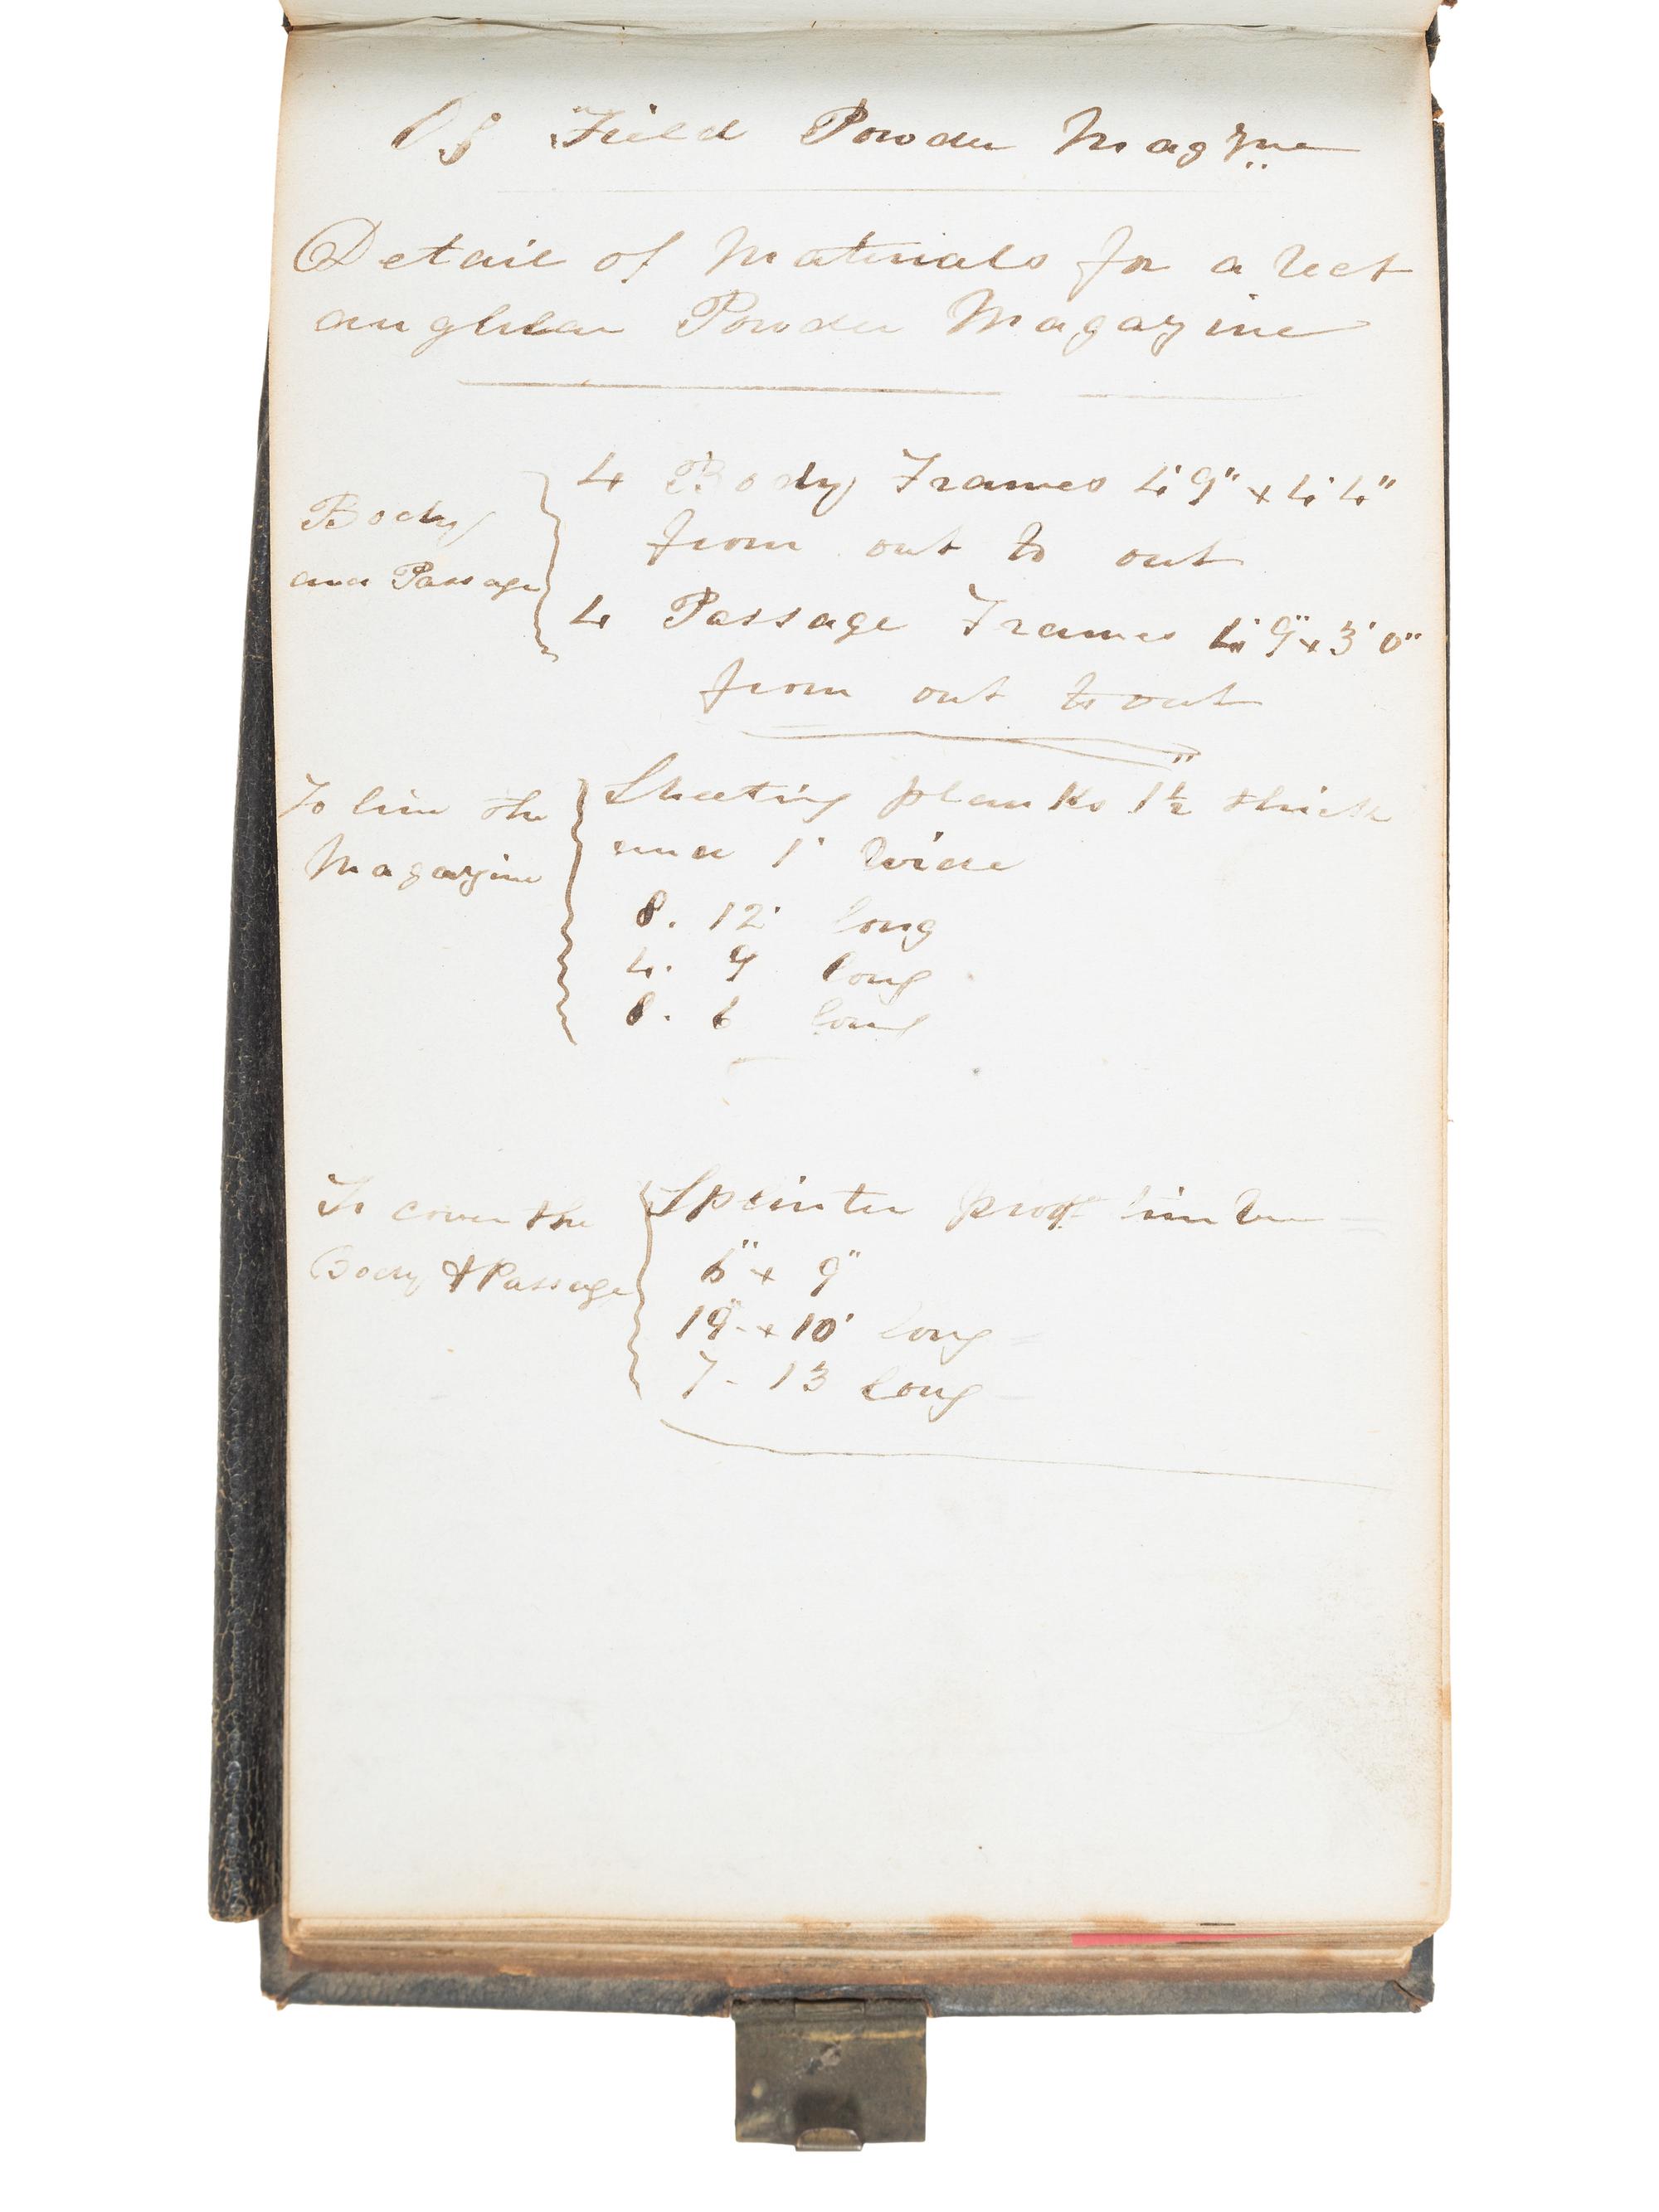 Of Field Powder Magzne
Detail of Materials for a Rect
angular Powder Magazine
Body
and Passage
4 Body Frames 4' 9" x 4' 4"
from out to out
4 Passage Frames 4' 9" x 3' 0"
from out to out
To line the
Magazine
Sheeting planks 1½" thick
and 1' wide
8. 12' long
4. 9 long
8. 6 long
To cover the
Body & Passage
Splinter proof timber
6" x 9"
19 - x 10' long
7 - 13 long